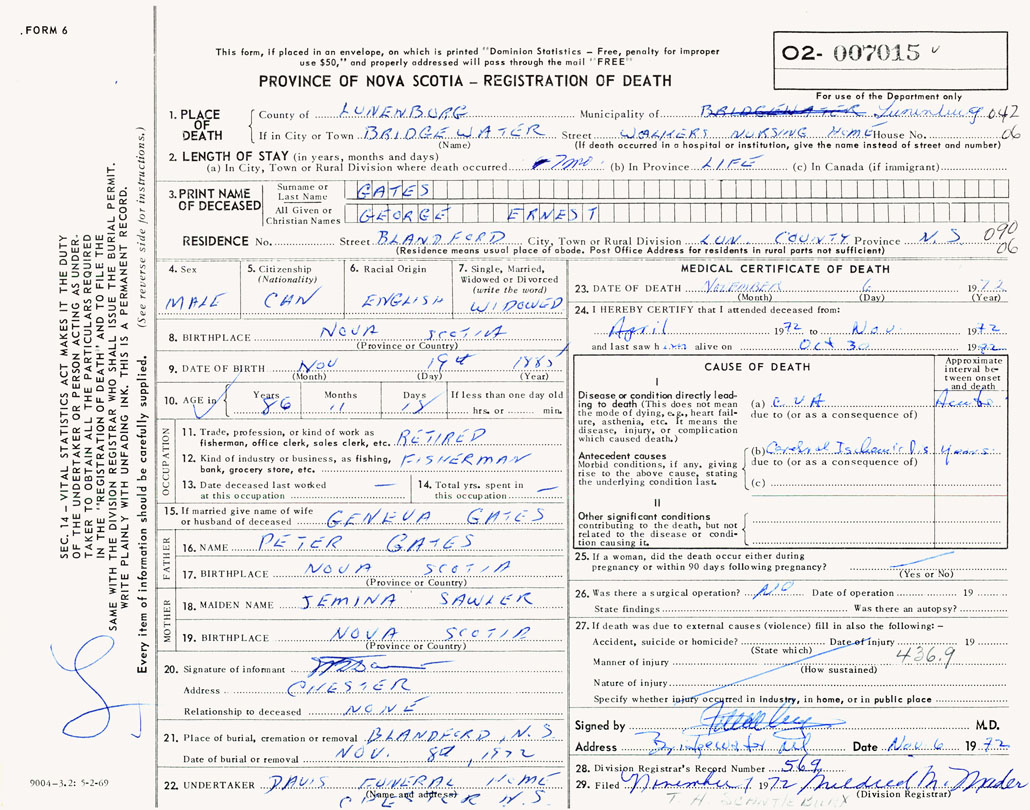 FORM 6
This form, if placed in an envelope, on which is printed "Dominion Statistics – Free, penalty for improper
use $50," and properly addressed will pass through the mail "FREE"
PROVINCE OF NOVA SCOTIA – REGISTRATION OF DEATH
O2- 007015
For use of the Department only
1. PLACE OF DEATH County of LUNENBURG Municipality of BRIDGEWATER Lunenburg 042
If in City or Town BRIDGEWATER Street WALKERS NURSING HOME House No. 06
(Name) (If death occurred in a hospital or institution, give the name instead of street and number)
2. LENGTH OF STAY (in years, months and days)
(a) In City, Town or Rural Division where death occurred 7 mo (b) In Province LIFE (c) In Canada (if immigrant)
3. PRINT NAME OF DECEASED Surname or Last Name GATES
All Given or Christian Names GEORGE ERNEST
RESIDENCE No. Street BLANDFORD City, Town or Rural Division LUN. COUNTY Province N.S 090
(Residence means usual place of abode. Post Office Address for residents in rural parts not sufficient) 06
4. Sex MALE
5. Citizenship (Nationality) CAN
6. Racial Origin ENGLISH
7. Single, Married, Widowed or Divorced (write the word) WIDOWED
8. BIRTHPLACE NOVA SCOTIA
(Province or Country)
9. DATE OF BIRTH NOV 19th 1885
(Month) (Day) (Year)
10. AGE in Years Months Days If less than one day old
86 11 18 hrs. or min.
OCCUPATION
11. Trade, profession, or kind of work as RETIRED
fisherman, office clerk, sales clerk, etc.
12. Kind of industry or business, as fishing, FISHERMAN
bank, grocery store, etc.
13. Date deceased last worked at this occupation —
14. Total yrs. spent in this occupation —
15. If married give name of wife or husband of deceased GENEVA GATES
FATHER
16. NAME PETER GATES
17. BIRTHPLACE NOVA SCOTIA
(Province or Country)
MOTHER
18. MAIDEN NAME JEMINA SAWLER
19. BIRTHPLACE NOVA SCOTIA
(Province or Country)
20. Signature of informant
Address CHESTER
Relationship to deceased NONE
21. Place of burial, cremation or removal BLANDFORD, N.S
Date of burial or removal NOV. 8th, 1972
22. UNDERTAKER DAVIS FUNERAL HOME
(Name and address) CHESTER N.S.
MEDICAL CERTIFICATE OF DEATH
23. DATE OF DEATH NOVEMBER 6 1972
(Month) (Day) (Year)
24. I HEREBY CERTIFY that I attended deceased from:
April 1972 to Nov. 1972
and last saw h alive on Oct 30 1972
CAUSE OF DEATH
Approximate interval between onset and death
I
Disease or condition directly leading to death (This does not mean the mode of dying, e.g., heart failure, asthenia, etc. It means the disease, injury, or complication which caused death.)
(a) C.V.A Acute
due to (or as a consequence of)
Antecedent causes
Morbid conditions, if any, giving rise to the above cause, stating the underlying condition last.
(b) Cerebral Ischemic Dis Years
due to (or as a consequence of)
(c)
II
Other significant conditions
contributing to the death, but not related to the disease or condition causing it.
25. If a woman, did the death occur either during
pregnancy or within 90 days following pregnancy?
(Yes or No)
26. Was there a surgical operation? NO Date of operation 19
State findings Was there an autopsy?
27. If death was due to external causes (violence) fill in also the following: –
Accident, suicide or homicide? Date of Injury 19
(State which) 436.9
Manner of injury
(How sustained)
Nature of injury
Specify whether injury occurred in industry, in home, or in public place
Signed by M.D.
Address Bridgewater Date Nov 6 1972
28. Division Registrar's Record Number 569
29. Filed November 1972 Mildred M. Meder
(Division Registrar)
SEC. 14 – VITAL STATISTICS ACT MAKES IT THE DUTY
OF THE UNDERTAKER OR PERSON ACTING AS UNDER-
TAKER TO OBTAIN ALL THE PARTICULARS REQUIRED
IN THE "REGISTRATION OF DEATH" AND TO FILE THE
SAME WITH THE DIVISION REGISTRAR WHO SHALL ISSUE THE BURIAL PERMIT.
WRITE PLAINLY WITH UNFADING INK. THIS IS A PERMANENT RECORD.
Every item of information should be carefully supplied. (See reverse side for instructions.)
9004-3.2: 5-2-69